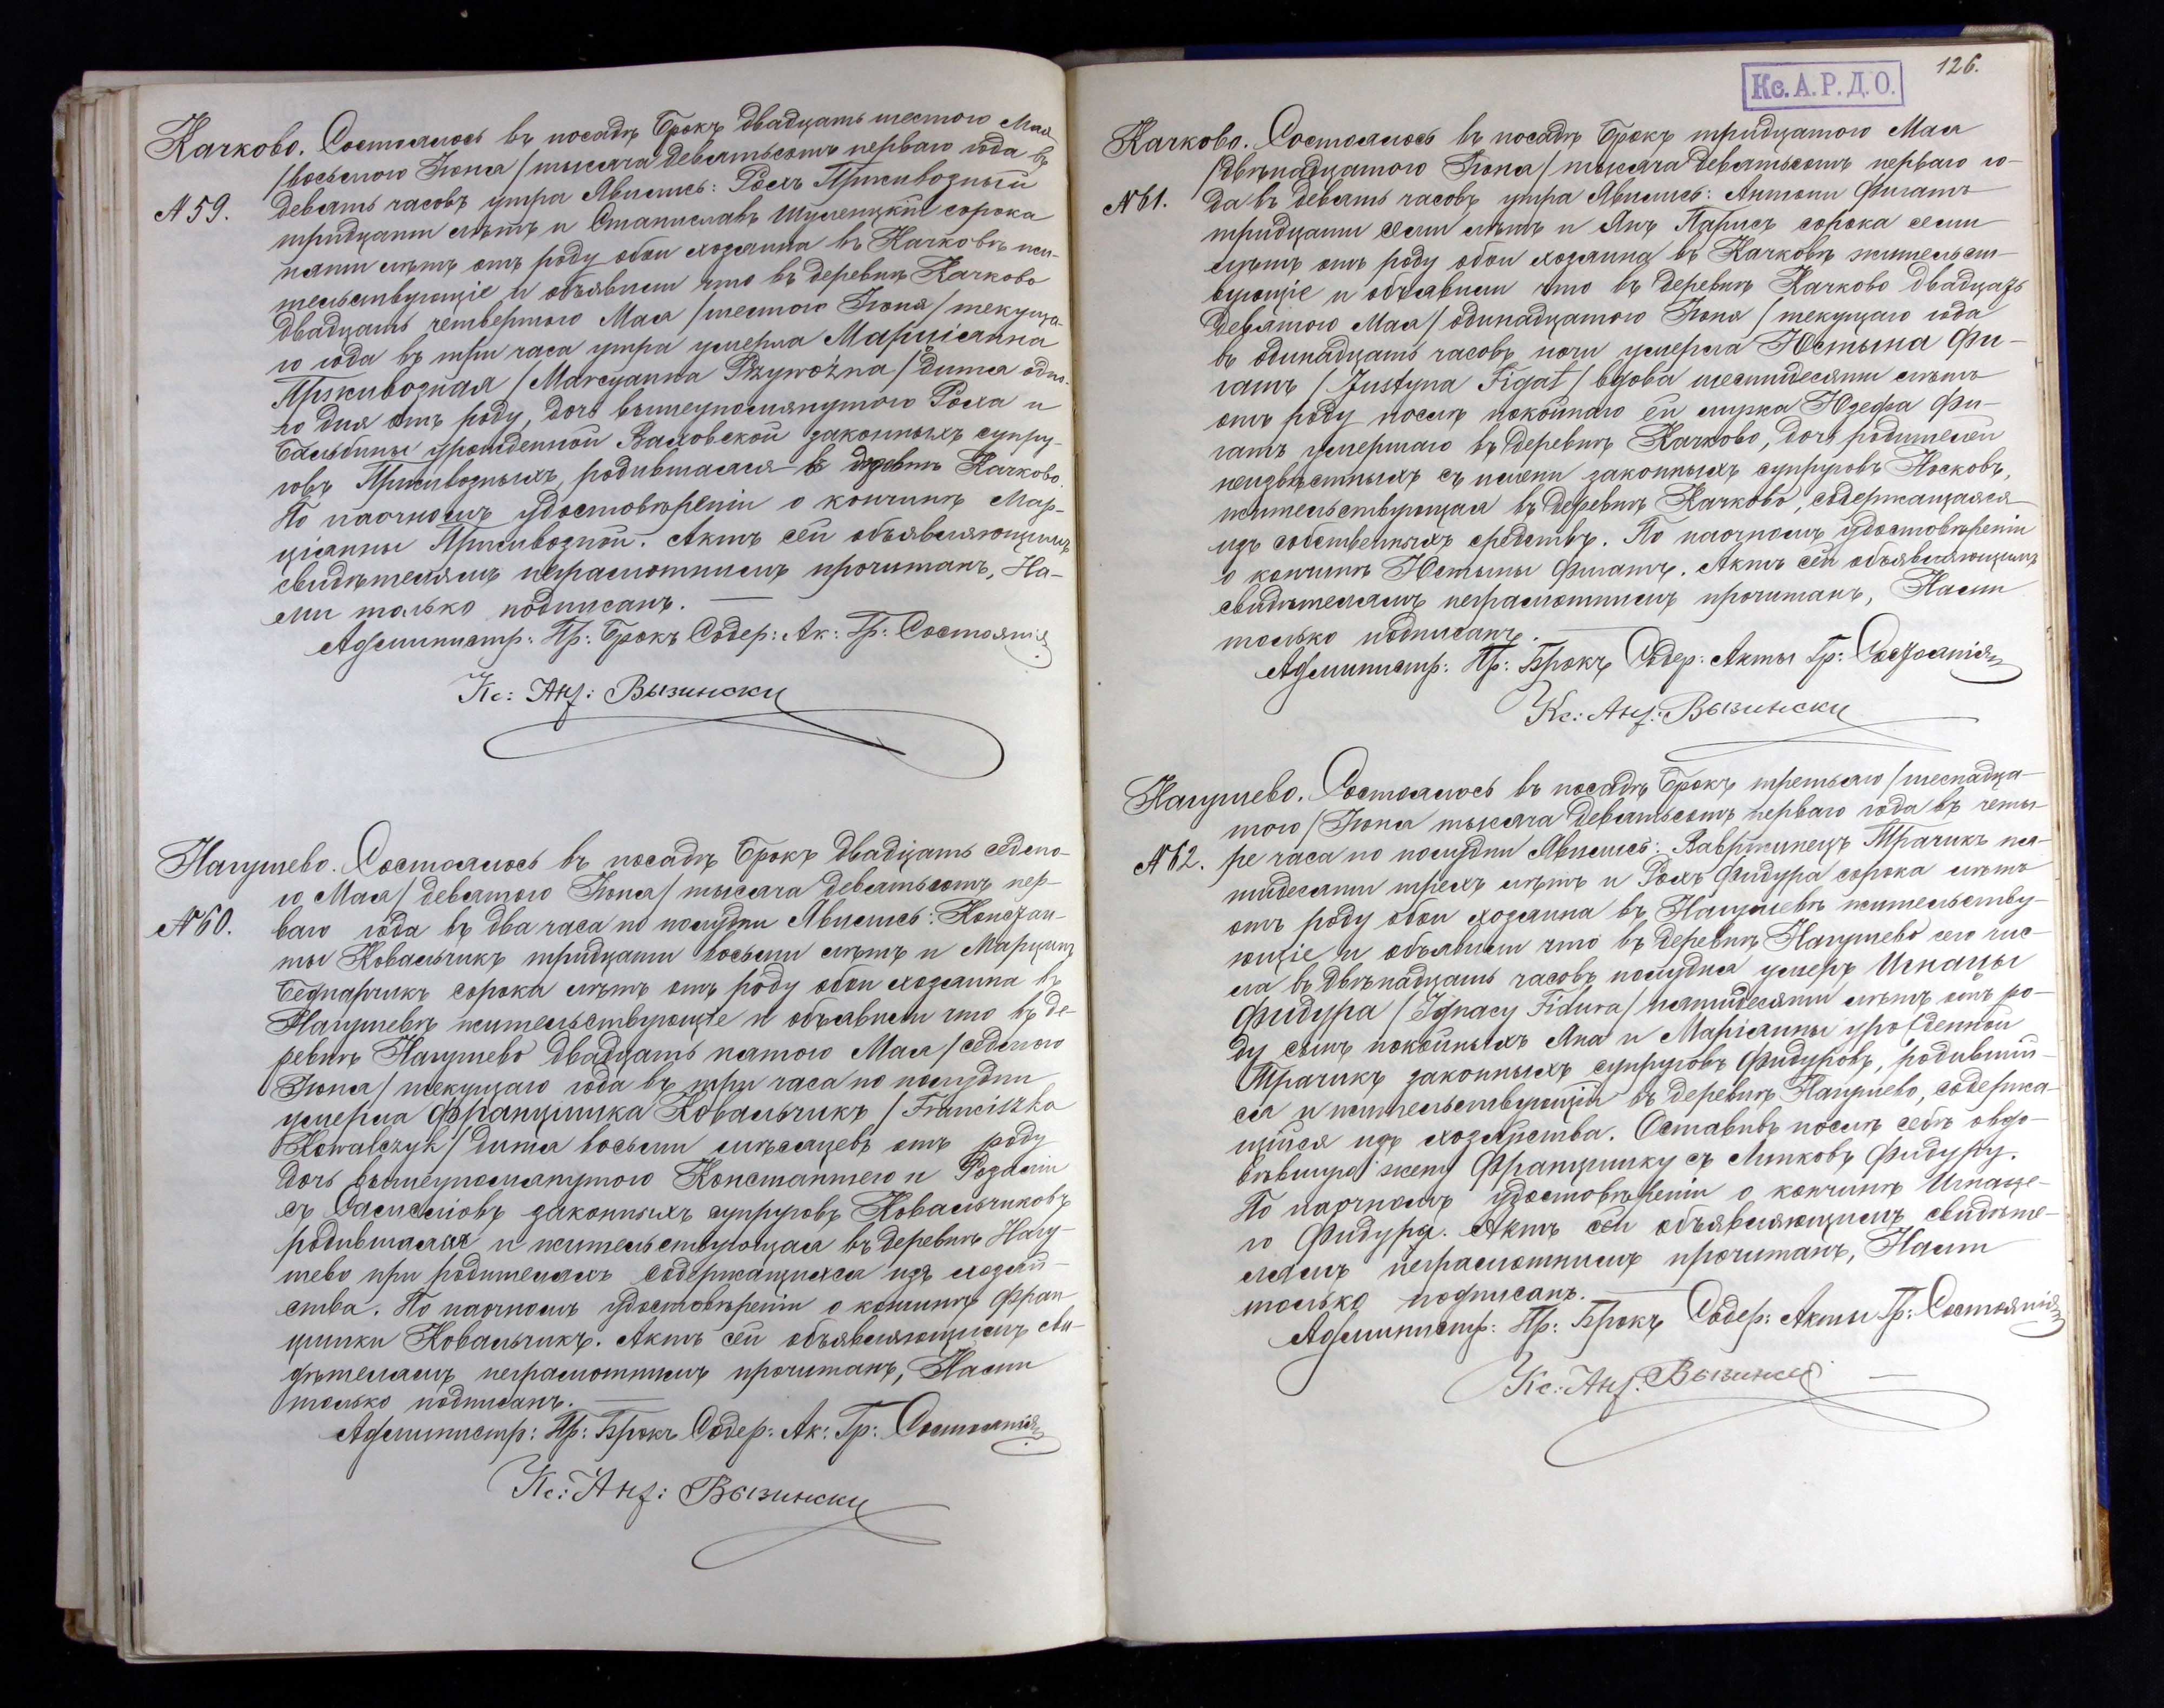 Качково. Состоялось въ посадѣ Брокъ двадцать шестого Мая
/восьмого Іюня/ тысяча девятьсотъ перваго года въ
№ 59. девять часовъ утра Явились: Рохъ Пршивозный
тридцати лѣтъ и Станиславъ Шулецкій сорока
пяти лѣтъ отъ роду обои хозяина въ Качковѣ жи-
тельствующіе и объявили что въ деревнѣ Качково
двадцать четвертого Мая /шестого Іюня/ текуща-
го года въ три часа утра умерла Марціанна
Пршивозная /Marcyanna Przywoźna/ дитя одно-
го дня отъ роду, дочь вышеупомянутого Роха и
Бальбины урожденной Ваховской законныхъ супру-
говъ Пршивозныхъ, родившаяся въ деревнѣ Качково.
По наочномъ удостовѣреніи о кончинѣ Мар-
ціанны Пршивозной. Актъ сей объявляющимъ
свидѣтелямъ неграмотнимъ прочитанъ, На-
ми только подписанъ.
Администр: Пр: Брокъ Содер: Ак: Гр: Состоянія
Кс: Анз: Вызински
Нагушево. Состоялось въ посадѣ Брокъ двадцать седмо-
го Мая /девятого Іюня/ тысяча девятьсотъ пер-
№ 60. ваго года въ два часа по полудни Явились: Констан-
ты Ковальчикъ тридцати восьми лѣтъ и Марцинъ
Беднарчикъ сорока лѣтъ отъ роду обои хозяина въ
Нагушевѣ жительствующіе и объявили что въ де-
ревнѣ Нагушево двадцать пятого Мая /седмого
Іюня/ текущаго года въ три часа по полудни
умерла Францишка Ковальчикъ /Franciszka
Kowalczyk/ дитя восьми мѣсяцевъ отъ роду
дочь вышеупомянутого Константего и Розаліи
съ законныхъ супруговъ Ковальчиковъ
родившаяся и жительствующая въ деревнѣ Нагу-
шево при родителяхъ содержащихся изъ хозяй-
ства. По наочномъ удостовѣреніи о кончинѣ Фран
цишки Ковальчикъ. Актъ сей объявляющимъ сви-
дѣтелямъ неграмотнимъ прочитанъ, Нами
только подписанъ.
Администр: Пр: Брокъ Содер: Ак: Гр: Состоянія
Кс: Анз: Вызински
126.
Кс. А. Р. Д. О.
Качково. Состоялось въ посадѣ Брокъ тридцатого Мая
/двѣнадцатого Іюня/ тысяча девятьсотъ перваго го-
№ 61. да въ девять часовъ утра Явились: Антони Фигатъ
тридцати семи лѣтъ и Янъ Парысъ сорока семи
лѣтъ отъ роду обои хозяина въ Качковѣ жительст-
вующіе и объявили что въ деревнѣ Качково двадцать
девятого Мая /одинадцатого Іюня/ текущаго года
въ одинадцать часовъ ночи умерла Юстына Фи-
гатъ /Justyna Figat/ вдова шестидесяти лѣтъ
отъ роду послѣ покойнаго ей мужа Юзефа Фи-
гатъ умершаго въ деревнѣ Качково, дочь родителей
неизвѣстныхъ съ имени законныхъ супруговъ Носковъ,
жительствующая въ деревнѣ Качково, содержащаяся
изъ собственныхъ средствъ. По наочномъ удостовѣреніи
о кончинѣ Юстыны Фигатъ. Актъ сей объявляющимъ
свидѣтелямъ неграмотнимъ прочитанъ, Нами
только подписанъ.
Администр: Пр: Брокъ Содер: Акты Гр: Состоянія
Кс: Анз: Вызински
Нагушево. Состоялось въ посадѣ Брокъ третьяго /шеснадца-
того/ Іюня тысяча девятьсотъ перваго года въ четы-
№ 62. ре часа по полудни Явились: Вавржинецъ Трачикъ пя-
тидесяти трехъ лѣтъ и Рохъ Фидура сорока лѣтъ
отъ роду обои хозяина въ Нагушевѣ жительству-
ющіе и объявили что въ деревнѣ Нагушево сего чис-
ла въ двѣнадцать часовъ полудня умеръ Игнацы
Фидура /Ignacy Fidura/ пятидесяти лѣтъ отъ ро-
ду сынъ покойныхъ Яна и Маріянны урожденной
Трачикъ законныхъ супруговъ Фидуровъ, родивший-
ся и жительствующій въ деревнѣ Нагушево, содержа-
щійся изъ хозяйства. Оставивъ послѣ себѣ овдо-
вѣвшую жену Францишку съ Липковъ Фидуру.
По наочномъ удостовѣреніи о кончинѣ Игнаце-
го Фидуры. Актъ сей объявляющимъ свидѣте-
лямъ неграмотнимъ прочитанъ, Нами
только подписанъ.
Администр: Пр: Брокъ Содер: Акты Гр: Состоянія
Кс: Анз: Вызински